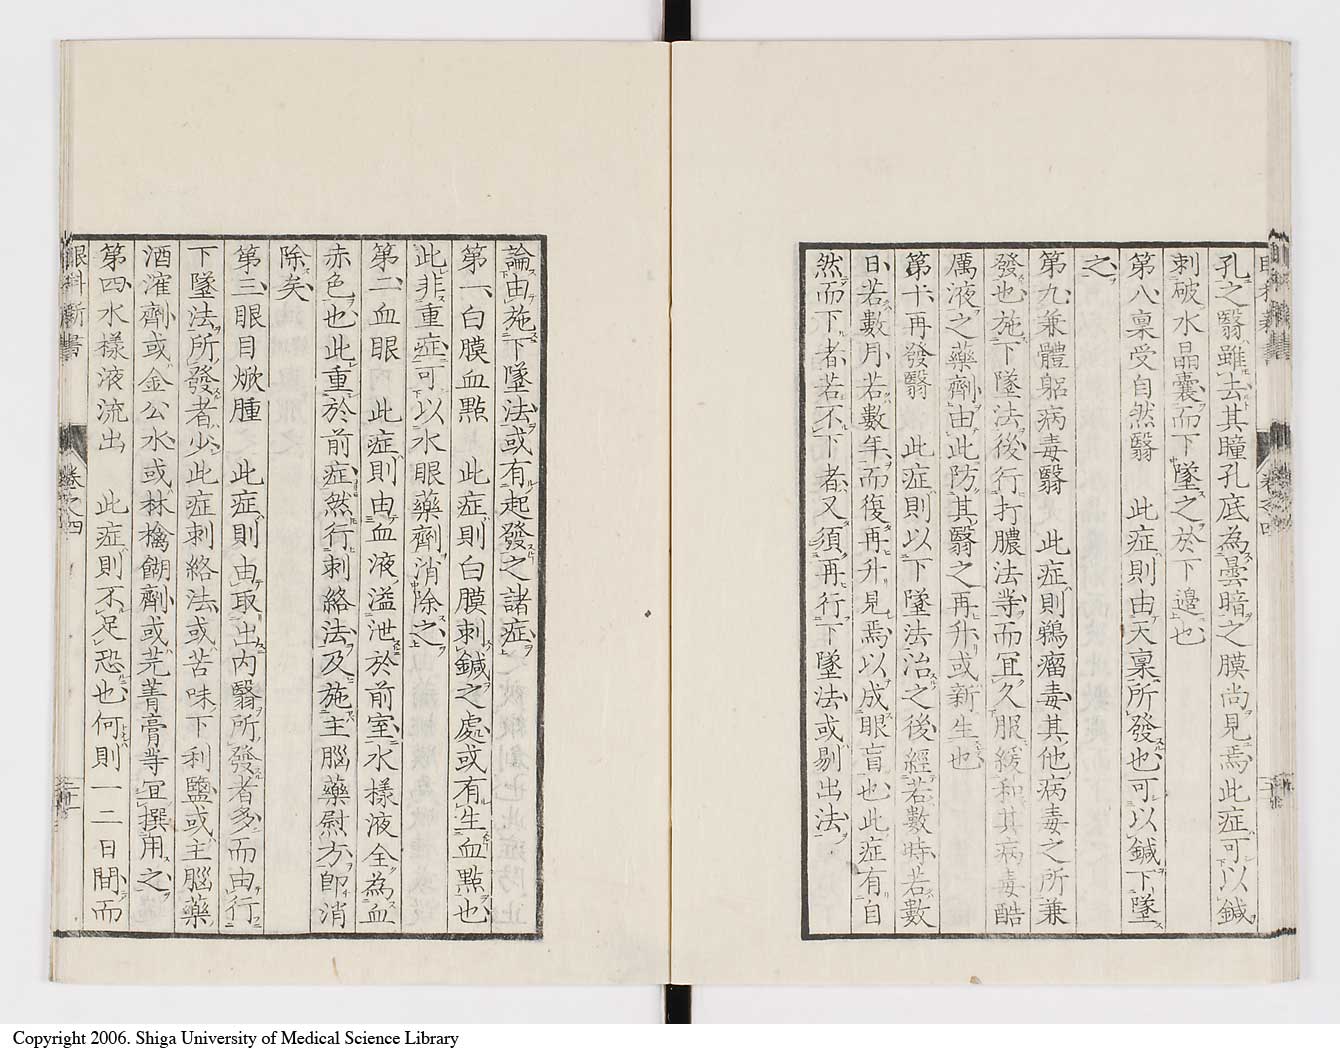 孔之翳雖去其瞳孔底為曇暗之膜尚見焉此症可以鍼
刺破水晶囊而下墜之於下邉也
第八稟受自然翳　此症則由天稟所發也可以鍼下墜
之
第九兼體軀病毒翳　此症則鵜瘤毒其他病毒之所兼
發也施下墜法後行打膿法等而宜久服緩和其病毒酷
厲液之藥劑由此防其翳之再升或新生也
第十再發翳　此症則以下墜法治之後經若數時若數
日若數月若數年而復再升見焉以成眼盲也此症有自
然而下者若不下者又須再行下墜法或剔出法
論由施下墜法或有起發之諸症
第一白膜血點　此症則白膜刺鍼之處或有生血點也
此非重症可以水眼藥劑消除之
第二血眼　此症則由血液溢泄於前室水樣液全為血
赤色也此重於前症然行刺絡法及施主腦藥慰方即消
除矣
第三眼目焮腫　此症則由取出內翳所發者多而由行
下墜法所發者少此症刺絡法或苦味下利鹽或主腦藥
酒㴶劑或金公水或林檎餬劑或芫菁膏等宜撰用之
第四水樣液流出　此症則不足恐也何則一二日間而
眼科新書
卷之四
Copyright 2006. Shiga University of Medical Science Library